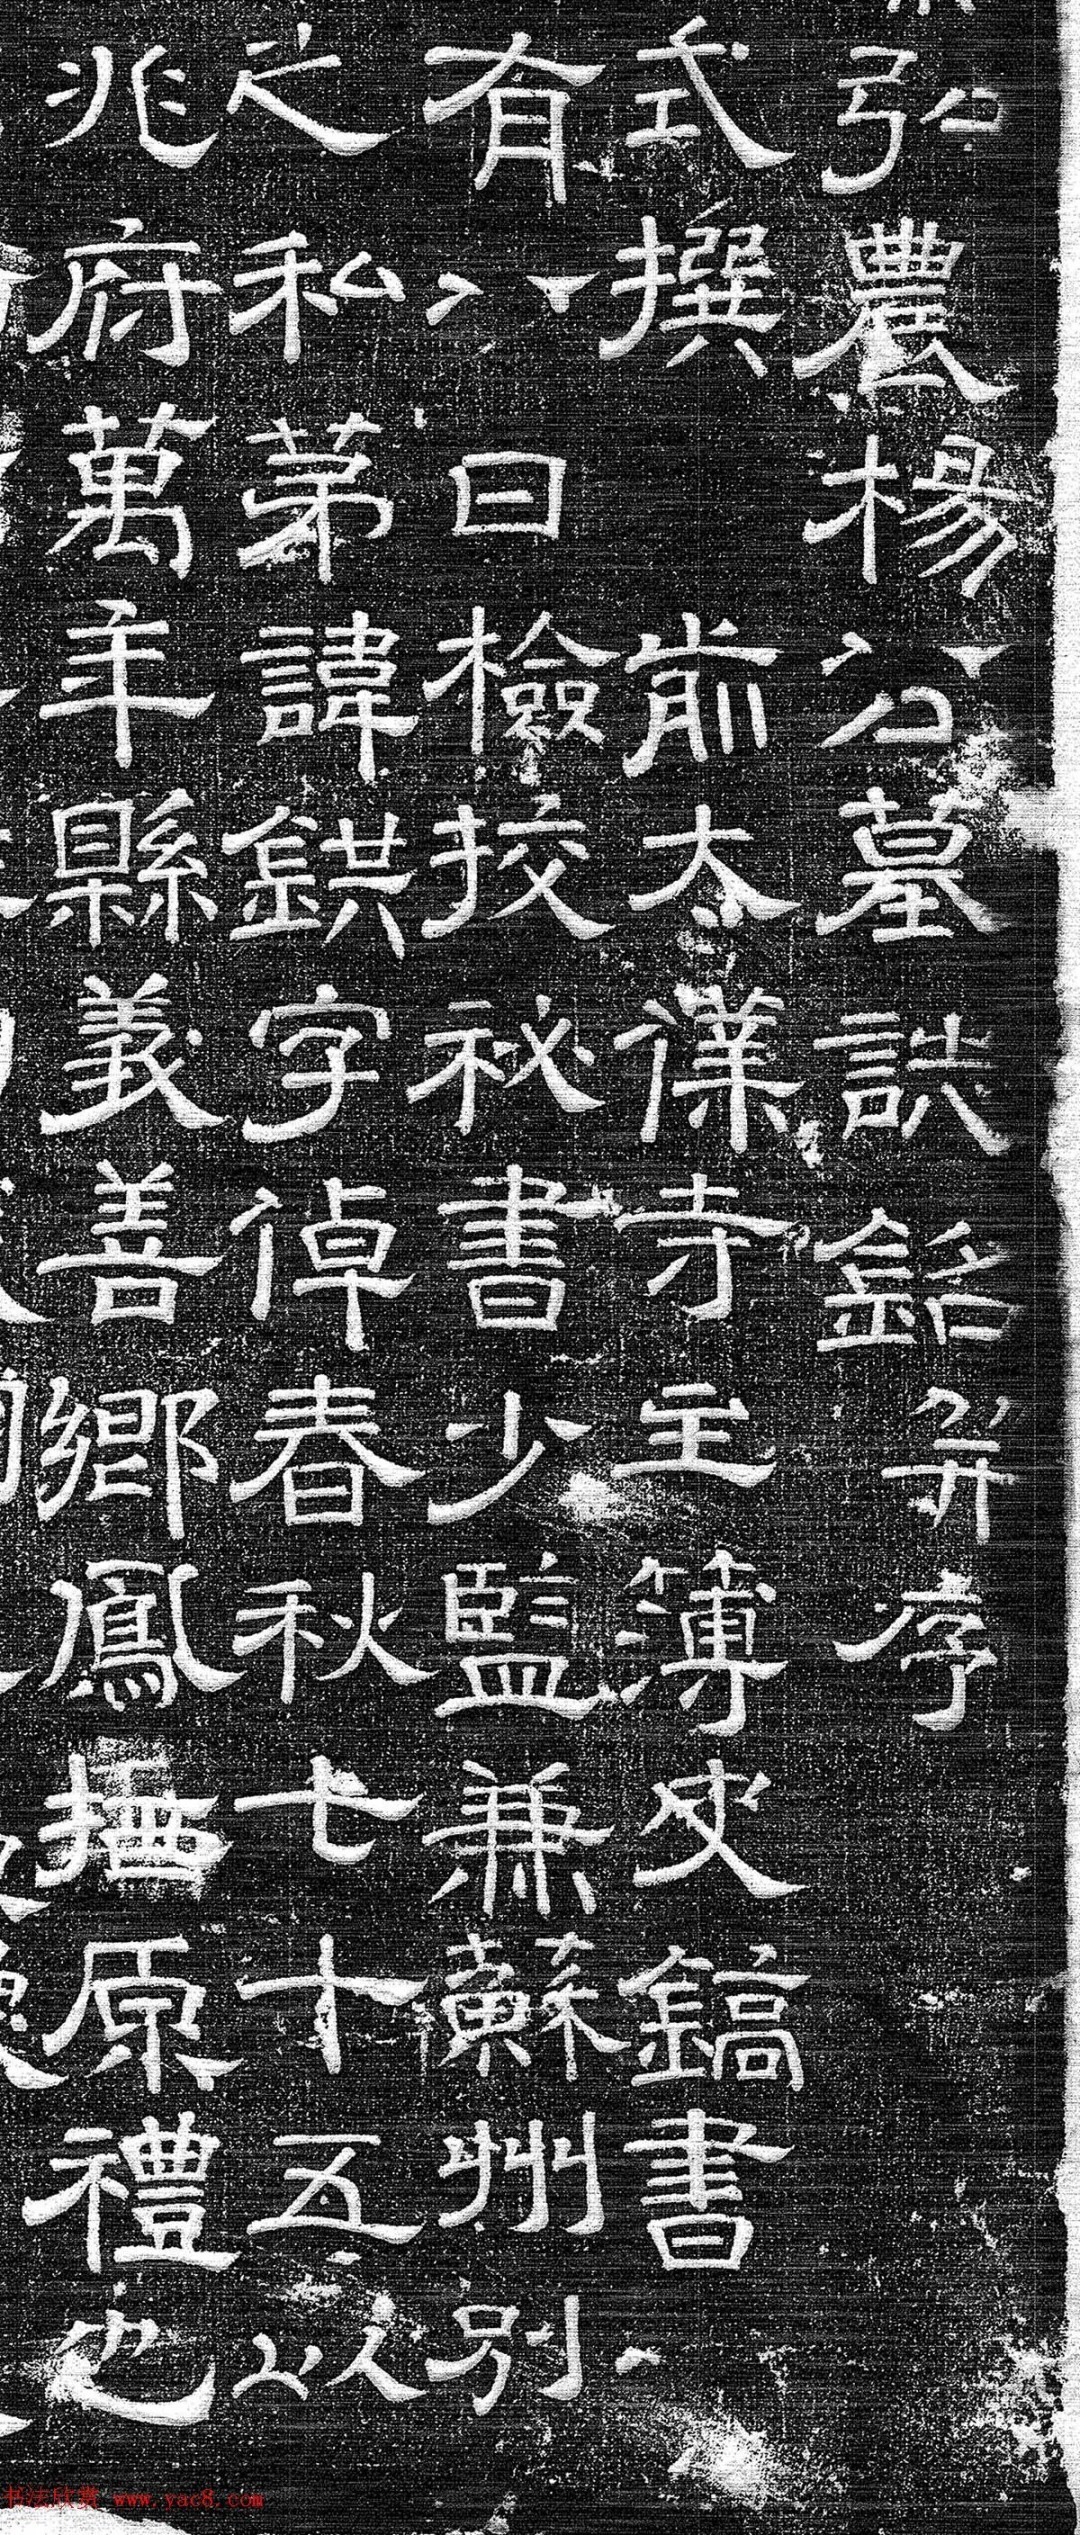 弘農楊公墓誌銘并序
式撰 前太僕寺主簿史鎬書
有八日檢挍祕書少監兼蘇州別
之私第諱鉷字倬春秋七十五以
兆府萬年縣義善鄉鳳栖原禮也
书法欣赏 www.yac8.com